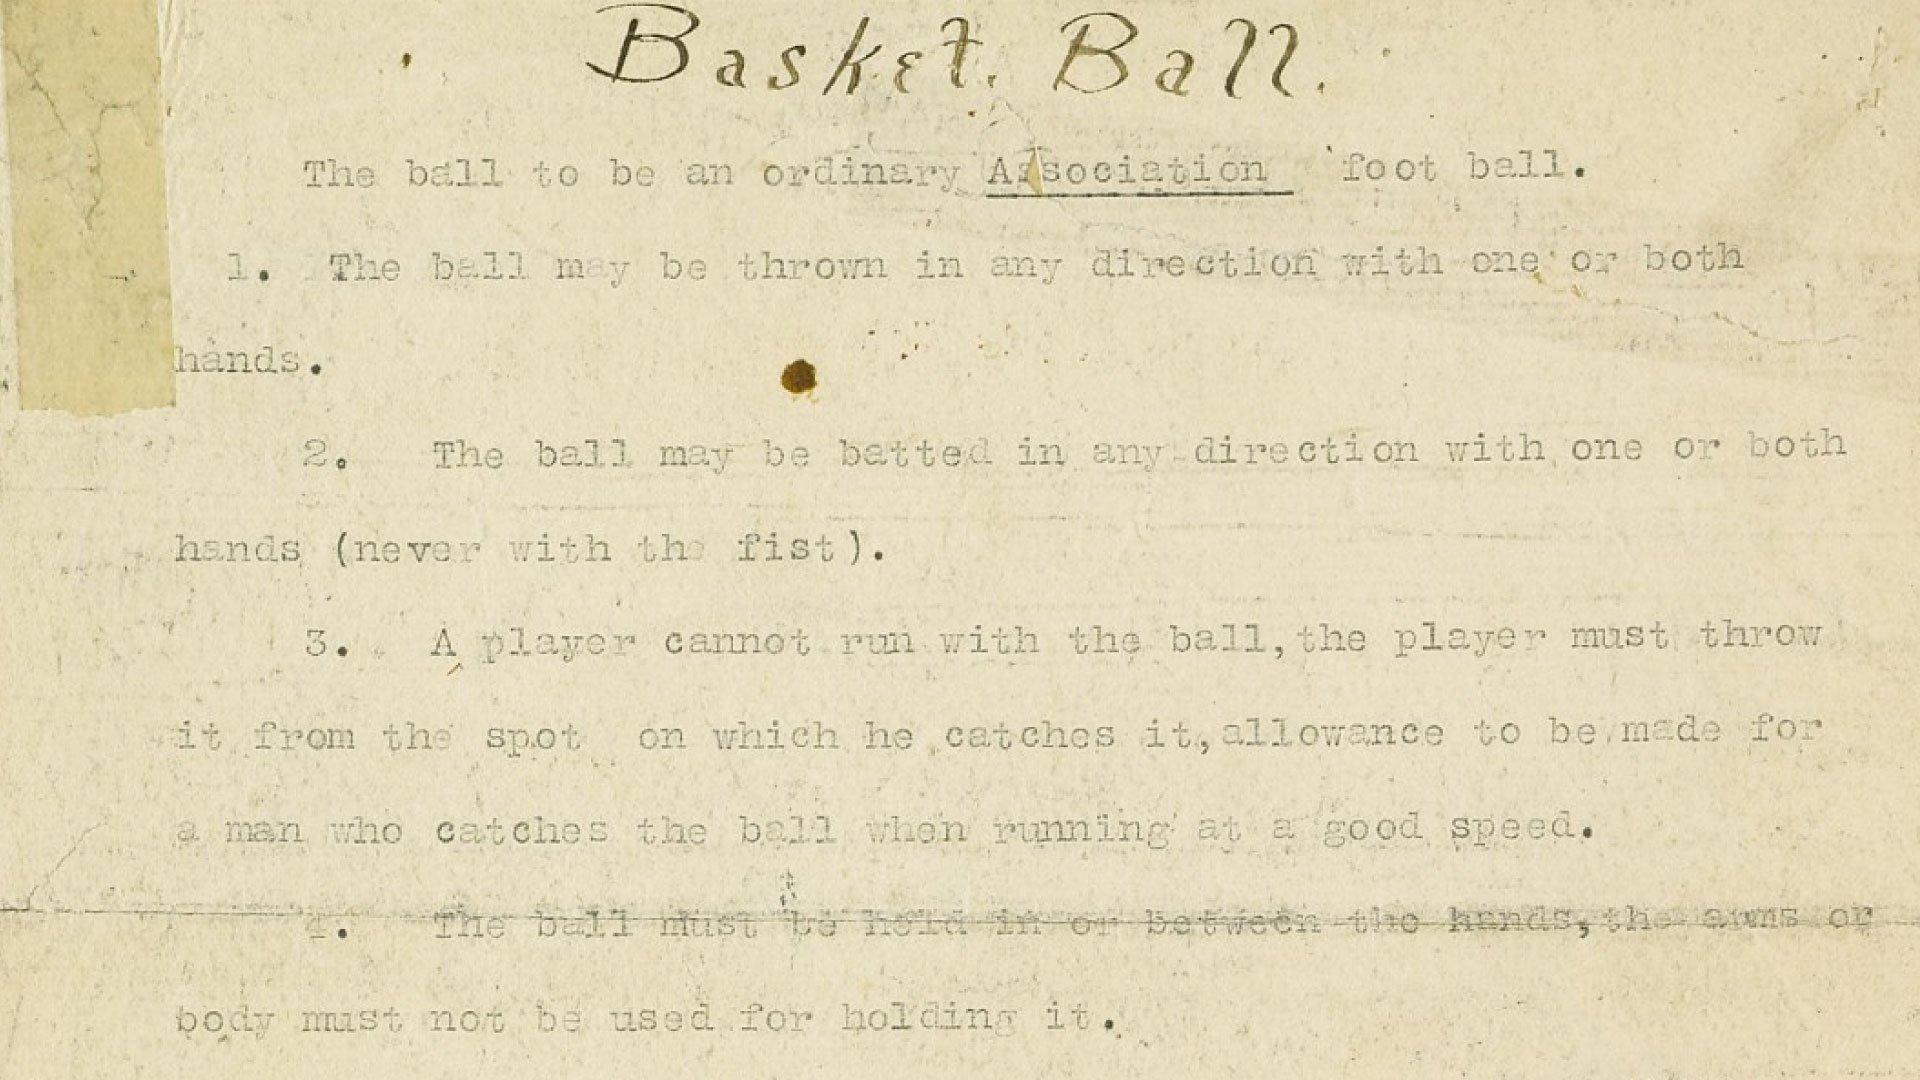 Basket. Ball.
The ball to be an ordinary Association foot ball.
1. The ball may be thrown in any direction with one or both
hands.
2. The ball may be batted in any direction with one or both
hands (never with the fist).
3. A player cannot run with the ball,the player must throw
it from the spot on which he catches it,allowance to be made for
a man who catches the ball when running at a good speed.
4. The ball must be held in or between the hands,the arms or
body must not be used for holding it.